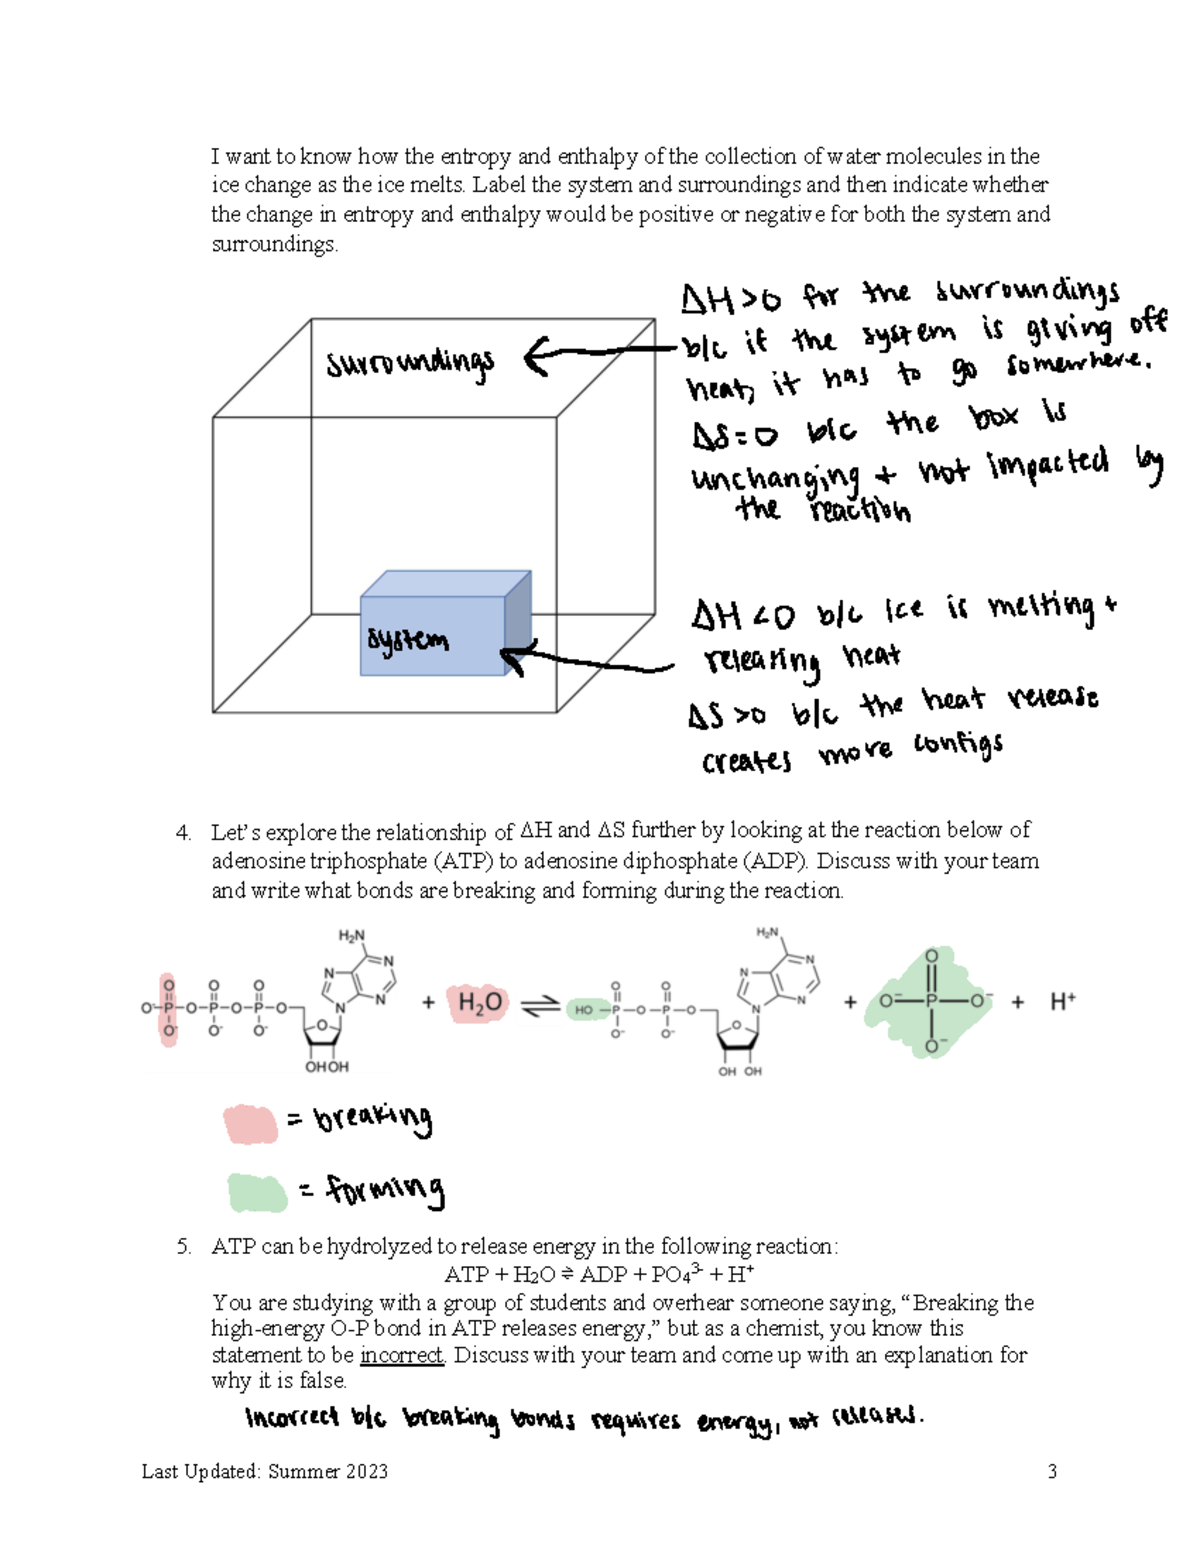 I want to know how the entropy and enthalpy of the collection of water molecules in the
ice change as the ice melts. Label the system and surroundings and then indicate whether
the change in entropy and enthalpy would be positive or negative for both the system and
surroundings.
surroundings
ΔH>0 for the surroundings
b/c if the system is giving off
heat, it has to go somewhere.
ΔS=0 b/c the box is
unchanging + not impacted by
the reaction
system
ΔH<0 b/c ice is melting +
releasing heat
ΔS>0 b/c the heat release
creates more configs
4. Let's explore the relationship of ΔH and ΔS further by looking at the reaction below of
adenosine triphosphate (ATP) to adenosine diphosphate (ADP). Discuss with your team
and write what bonds are breaking and forming during the reaction.
H₂N N N N N O O O O⁻-P-O-P-O-P-O O⁻ O⁻ O⁻ O OH OH
+ H₂O ⇌
H₂N N N N N O O HO-P-O-P-O O⁻ O⁻ O OH OH
+ O O⁻-P-O⁻ O⁻ + H⁺
= breaking
= forming
5. ATP can be hydrolyzed to release energy in the following reaction:
ATP + H₂O ⇌ ADP + PO₄³⁻ + H⁺
You are studying with a group of students and overhear someone saying, “Breaking the
high-energy O-P bond in ATP releases energy,” but as a chemist, you know this
statement to be incorrect. Discuss with your team and come up with an explanation for
why it is false.
Incorrect b/c breaking bonds requires energy, not releases.
Last Updated: Summer 2023 3